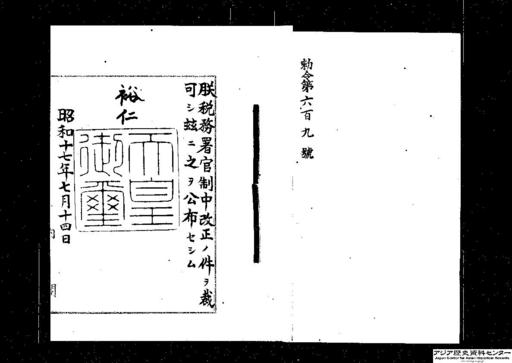 勅令第六百九號
朕税務署官制中改正ノ件ヲ裁
可シ茲ニ之ヲ公布セシム
裕仁
天皇
御璽
昭和十七年七月十四日
アジア歴史資料センター
Japan Center for Asian Historical Records